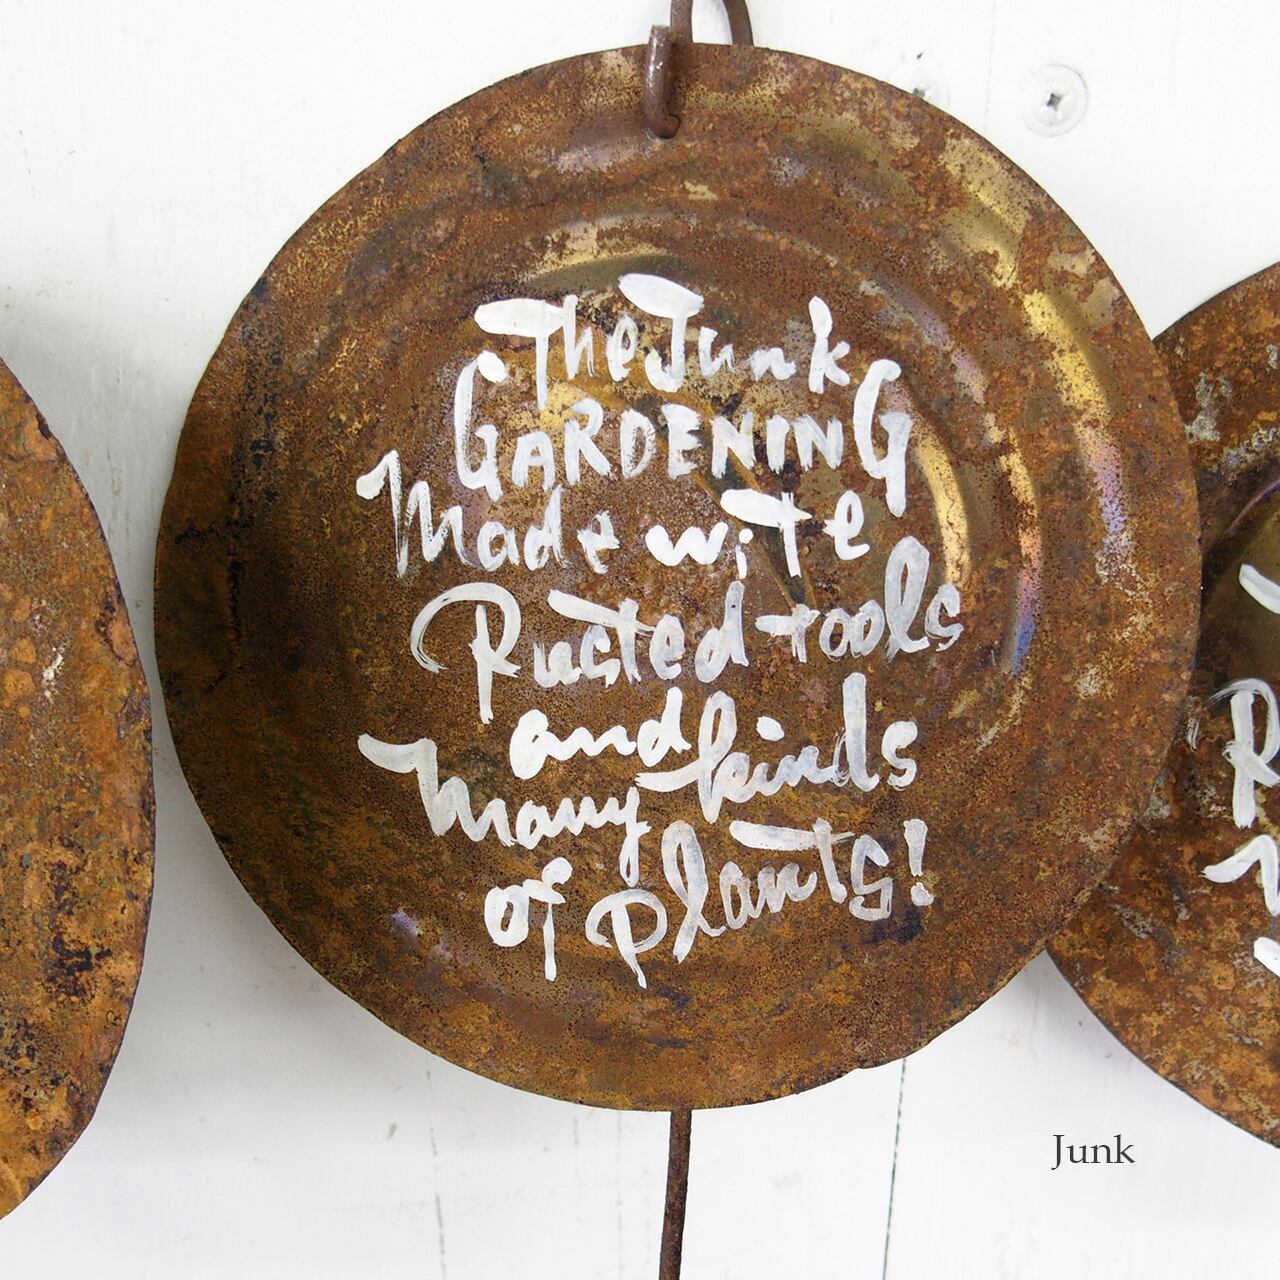 The Junk
GARDENING
Made wite
Rusted tools
and kinds
Many
of plants!
R
Junk